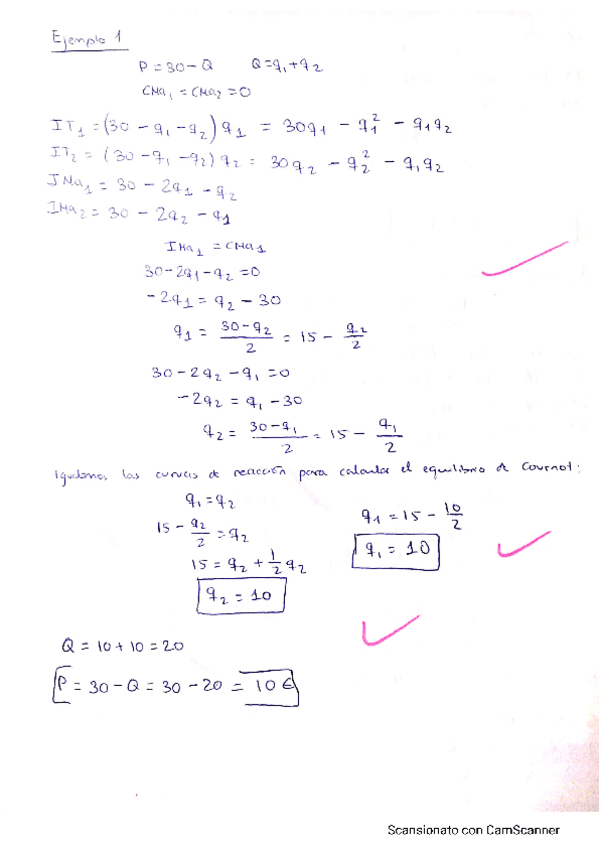 Ejemplo 1
P = 30 - Q Q = q₁ + q₂
CMa₁ = CMa₂ = 0
IT₁ = (30 - q₁ - q₂) q₁ = 30q₁ - q₁² - q₁q₂
IT₂ = (30 - q₁ - q₂) q₂ = 30q₂ - q₂² - q₁q₂
IMa₁ = 30 - 2q₁ - q₂
IMa₂ = 30 - 2q₂ - q₁
IMa₁ = CMa₁
30 - 2q₁ - q₂ = 0
-2q₁ = q₂ - 30
q₁ = (30 - q₂)/2 = 15 - q₂/2
30 - 2q₂ - q₁ = 0
-2q₂ = q₁ - 30
q₂ = (30 - q₁)/2 = 15 - q₁/2
Igualamos las curvas de reacción para calcular el equilibrio de Cournot:
q₁ = q₂
15 - q₂/2 = q₂
15 = q₂ + 1/2 q₂
q₂ = 10
q₁ = 15 - 10/2
q₁ = 10
Q = 10 + 10 = 20
P = 30 - Q = 30 - 20 = 10 €
Scansionato con CamScanner